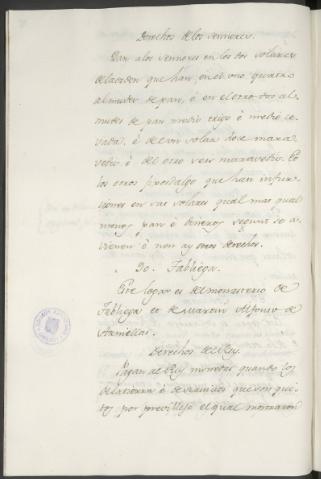 Derechos de los sennores.
Dan a los sennores en los dos solares
de la orden que han, en el uno quatro
almudes de pan, è en el otro dos al
mudes de pan medio trigo è medio ce
vada, è del un solar doce mará
vedis è del otro seis maravedis. E
los otros fijosdalgo que han infur
ciones en sus solares qual mas qual
menos pan è dineros segund se a
vienen è non ay otros derechos.
90. Tabliega.
Este logar es del monasterio de
Tabliega et de Martin Alfonso de
Arnellas.
Derechos del Rey.
Pagan al Rey monedas quando los
de la tierra è servicios que son qui
tos por previllejo el qual mostraron